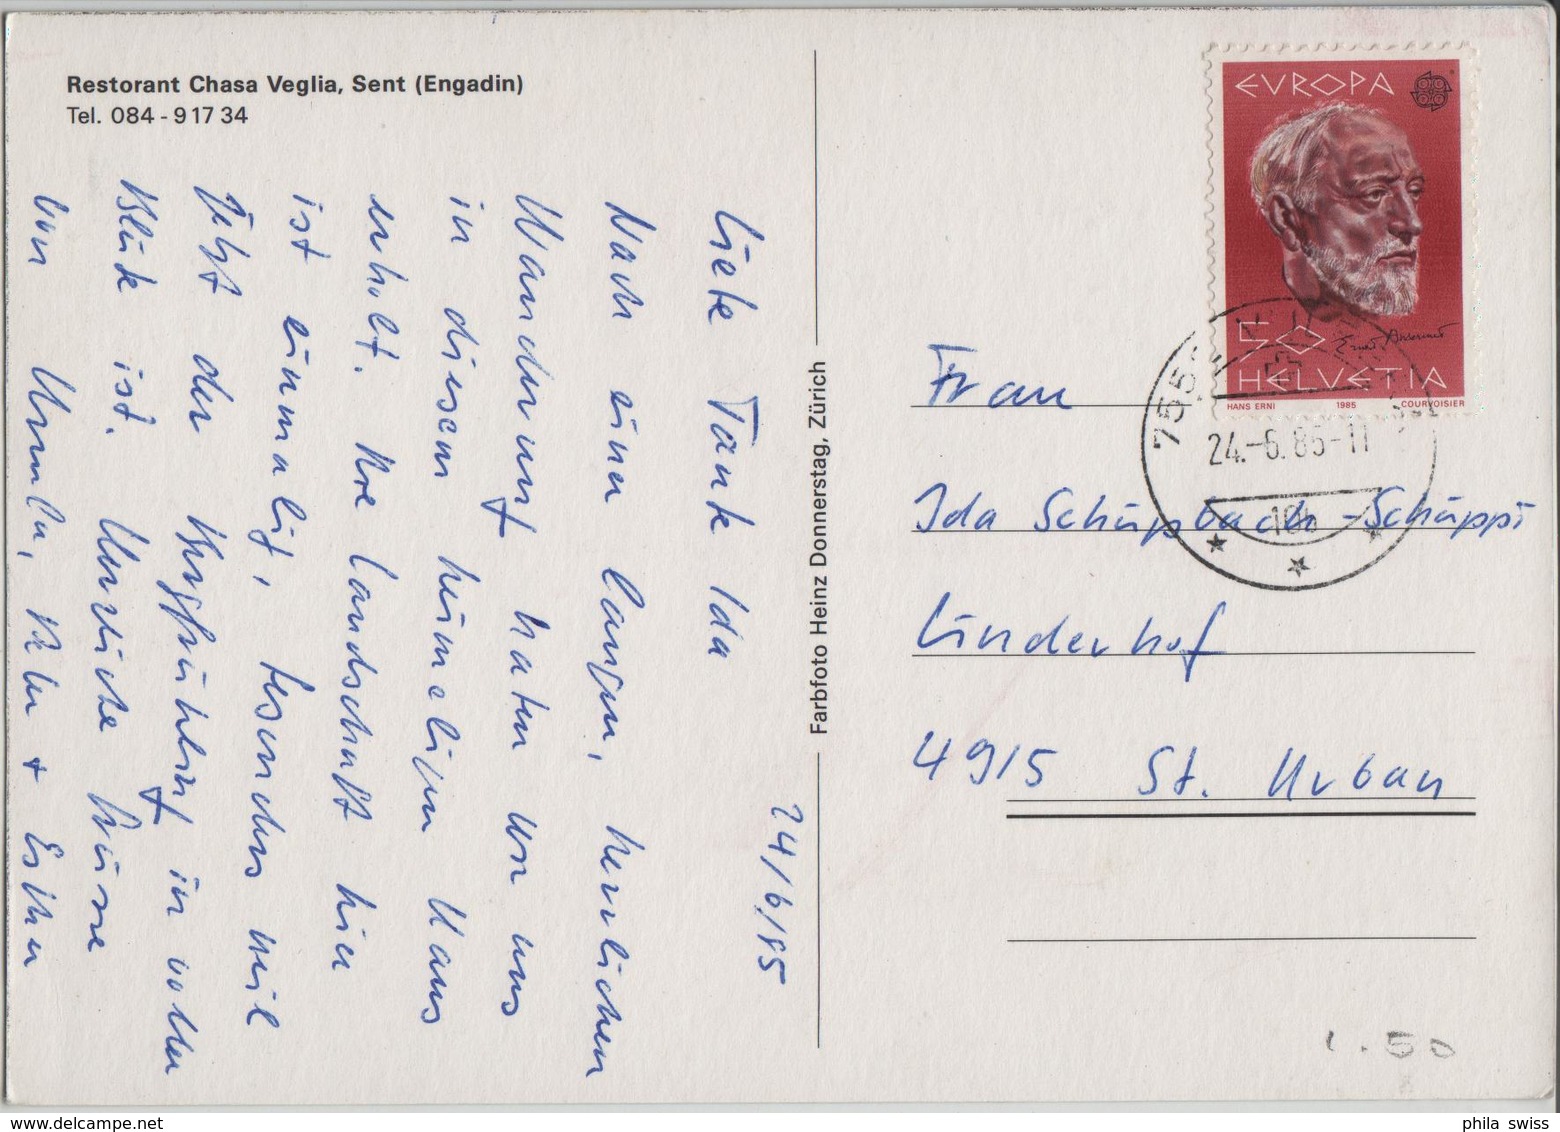 Restorant Chasa Veglia, Sent (Engadin)
Tel. 084 - 9 17 34
24/6/85
Liebe Tante Ida
Nach einer langen, herrlichen
Wanderung haben wir uns
in diesem heimeligen Haus
erholt. Die Landschaft hier
ist einmalig, besonders weil
jetzt der Bergfrühling in voller
Blüte ist. Herzliche Grüsse
von Ursula, + Esther
Farbfoto Heinz Donnerstag, Zürich
EVROPA
50
HELVETIA
HANS ERNI 1985 COURVOISIER
755
24.-6.85-11
Frau
Ida Schüpbach-Schüppi
Linderhof
4915 St. Urban
1.50
phila swiss
www.delcampe.net